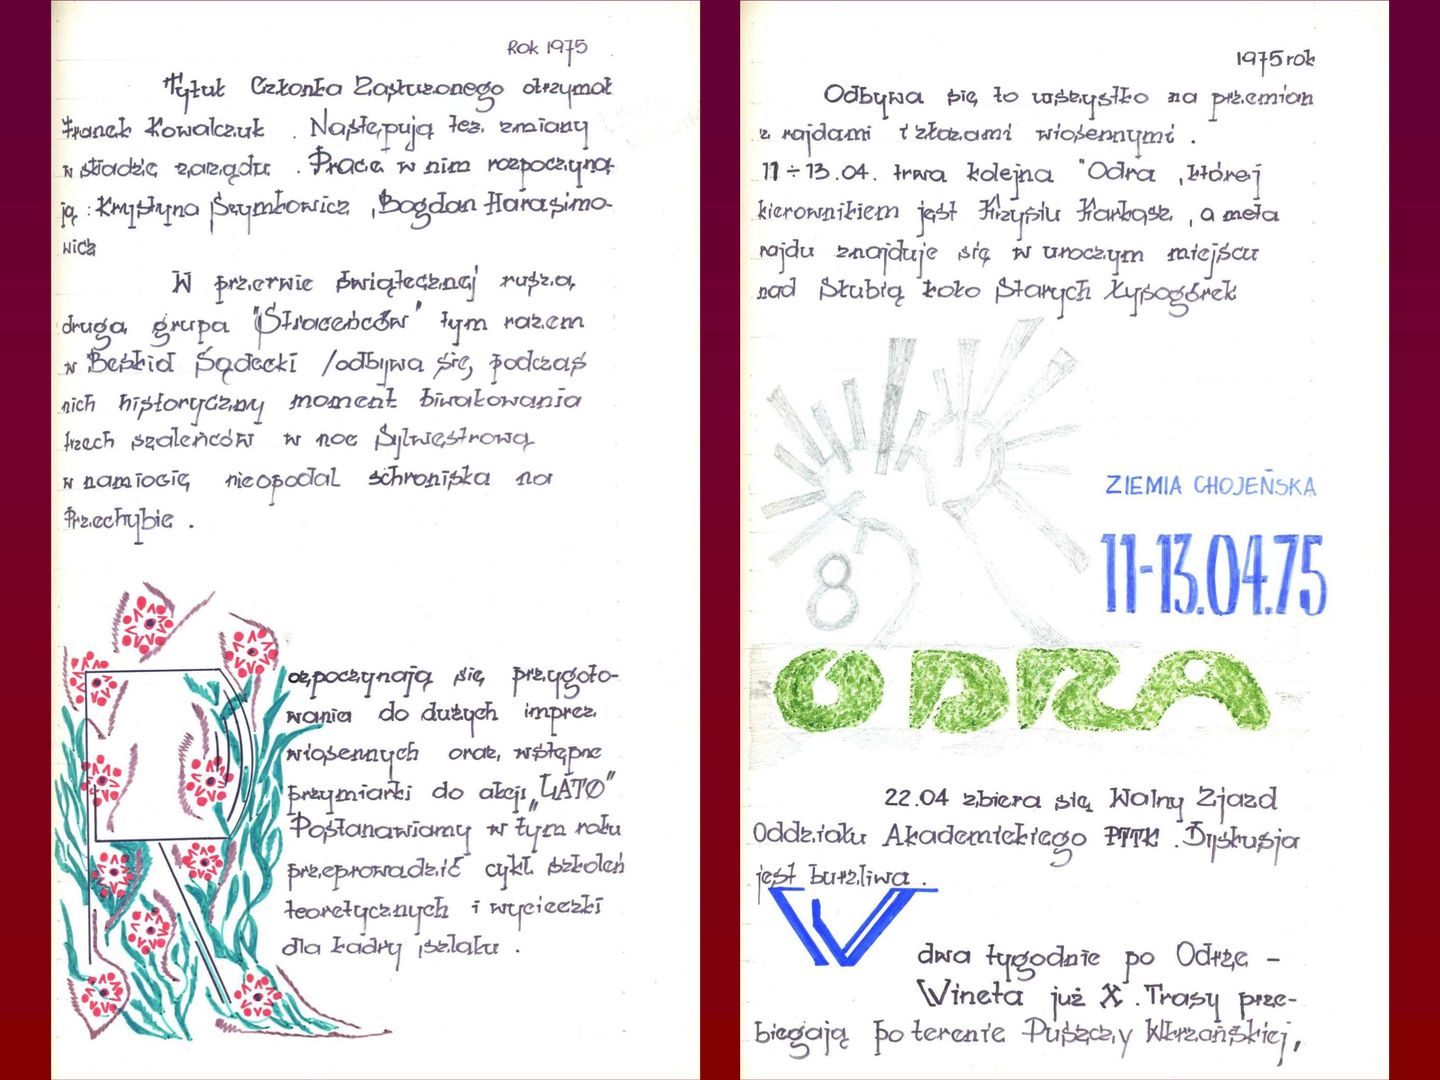 Rok 1975
Tytuł Członka Zasłużonego otrzymał
Franek Kowalczuk . Następują też zmiany
w składzie zarządu . Pracę w nim rozpoczyna-
ją : Krystyna Szymkowicz , Bogdan Harasimo-
wicz
W przerwie świątecznej rusza
druga grupa "Straceńców" tym razem
w Beskid Sądecki /odbywa się podczas
nich historyczny moment biwakowania
trzech szaleńców w noc Sylwestrową
w namiocie nieopodal schroniska na
Przechybie .
R
ozpoczynają się przygoto-
wania do dużych imprez
wiosennych oraz wstępne
przymiarki do akcji „LATO"
Postanawiamy w tym roku
przeprowadzić cykl szkoleń
teoretycznych i wycieczki
dla kadry szlaku .
1975 rok
Odbywa się to wszystko na przemian
z rajdami i złazami wiosennymi .
11÷13.04. trwa kolejna "Odra , której
kierownikiem jest Krzysiu Karkosz , a meta
rajdu znajduje się w uroczym miejscu
nad Słubią koło Starych Łysogórek
ZIEMIA CHOJEŃSKA
8
11-13.04.75
ODRA
22.04 zbiera się Walny Zjazd
Oddziału Akademickiego PTTK . Dyskusja
jest burzliwa .
W
dwa tygodnie po Odrze -
Wineta już X . Trasy prze-
biegają po terenie Puszczy Wkrzańskiej,